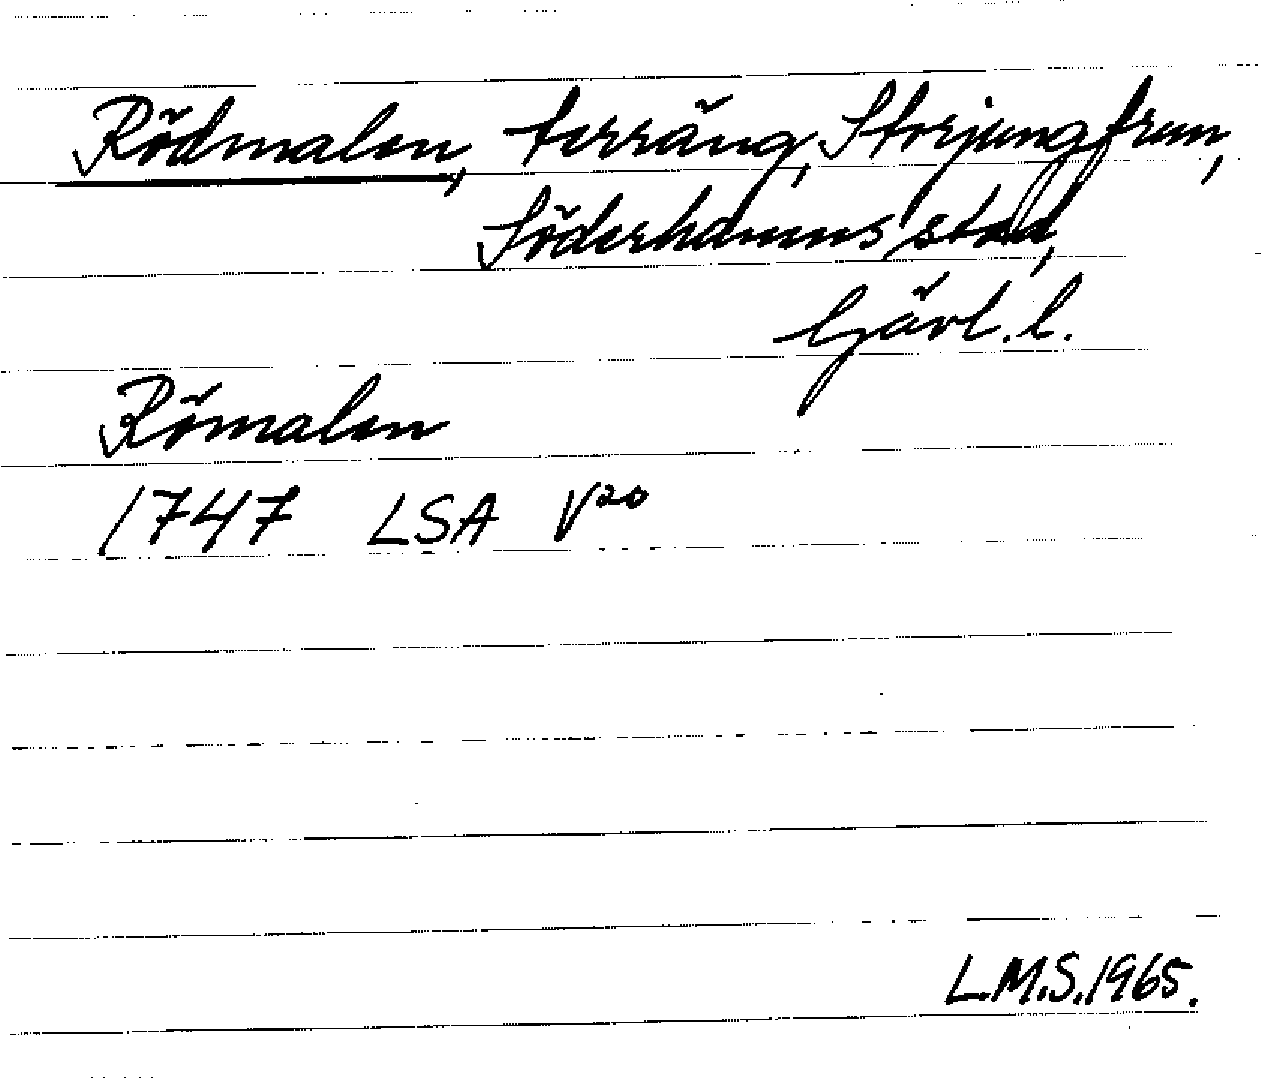 Rödmalen, terräng, Storjungfrun,
Söderhamns stad,
Gävl. l.
Römalen
1747 LSA V20
L.M.S. 1965.